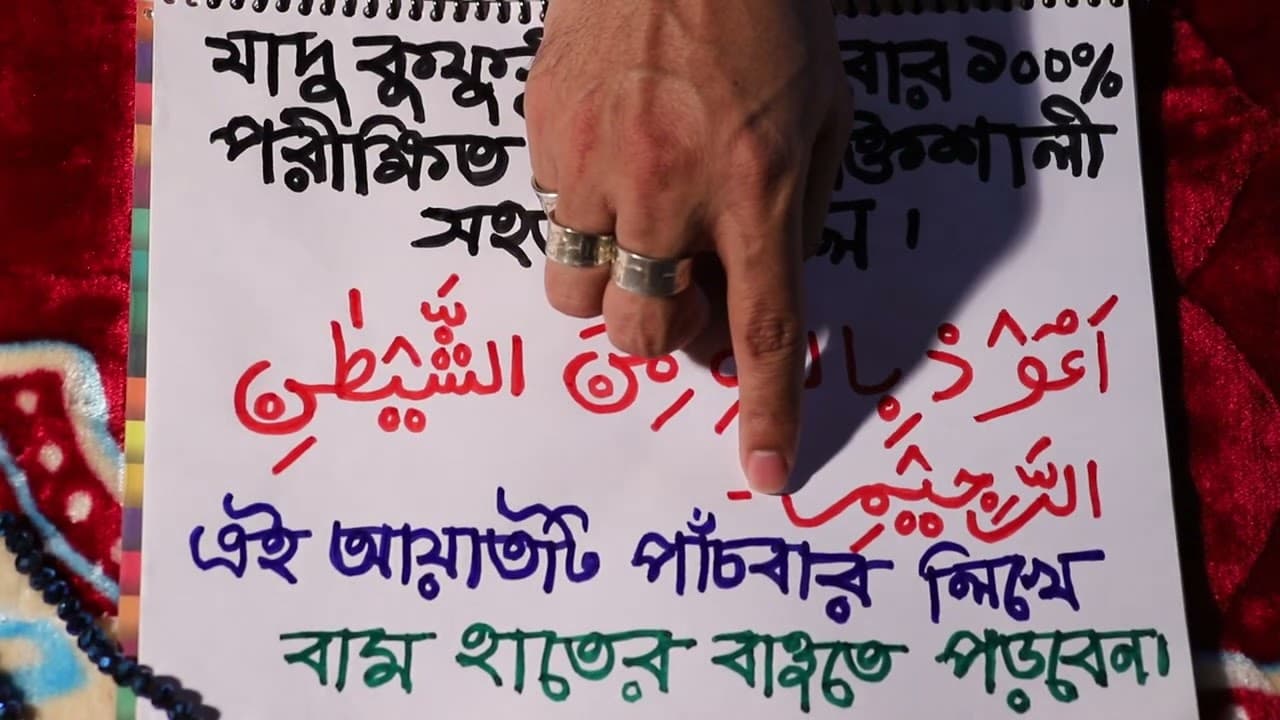 যাদু কুফুরী বার ১০০%
পরীক্ষিত ক্তিশালী
সহজ
اَعُوْذُ بِاللهِ مِنَ الشَّيْطٰنِ
الرَّجِيْمِ
এই আয়াতটি পাঁচবার লিখে
বাম হাতের বাহুতে পড়বেন।